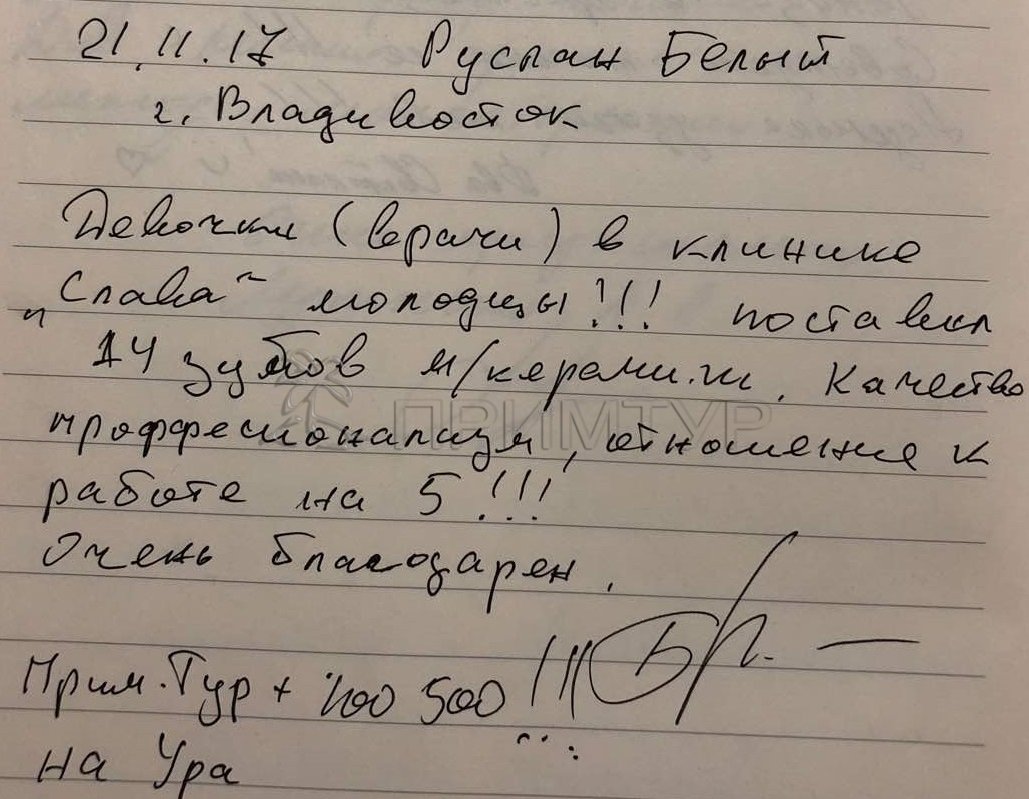 21.11.17 Руслан Белый
г. Владивосток
Девочки (врачи) в клинике
"Слава" молодцы!!! поставил
14 зубов м/керамики. Качество
проффесионализм, отношение к
работе на 5!!!
Очень благодарен.
Прим.Тур + 100 500 !!!
на Ура
ПРИМТУР